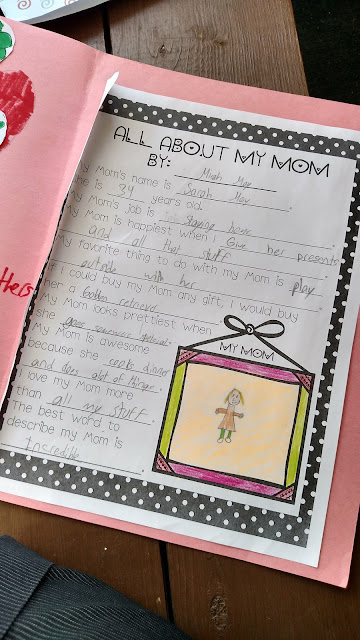 ALL ABOUT MY MOM
BY: Micah May
My Mom's name is Sarah May.
She is 34 years old.
My Mom's job is staying home.
My Mom is happiest when I Give her presents
and all that stuff.
My favorite thing to do with my Mom is play
outside with her.
If I could buy my Mom any gift, I would buy
her a Golden retriever.
My Mom looks prettiest when
she
My Mom is awesome
because she cooks dinner
and does alot of things.
I love my Mom more
than all my stuff.
The best word to
describe my Mom is
Incredible.
MY MOM